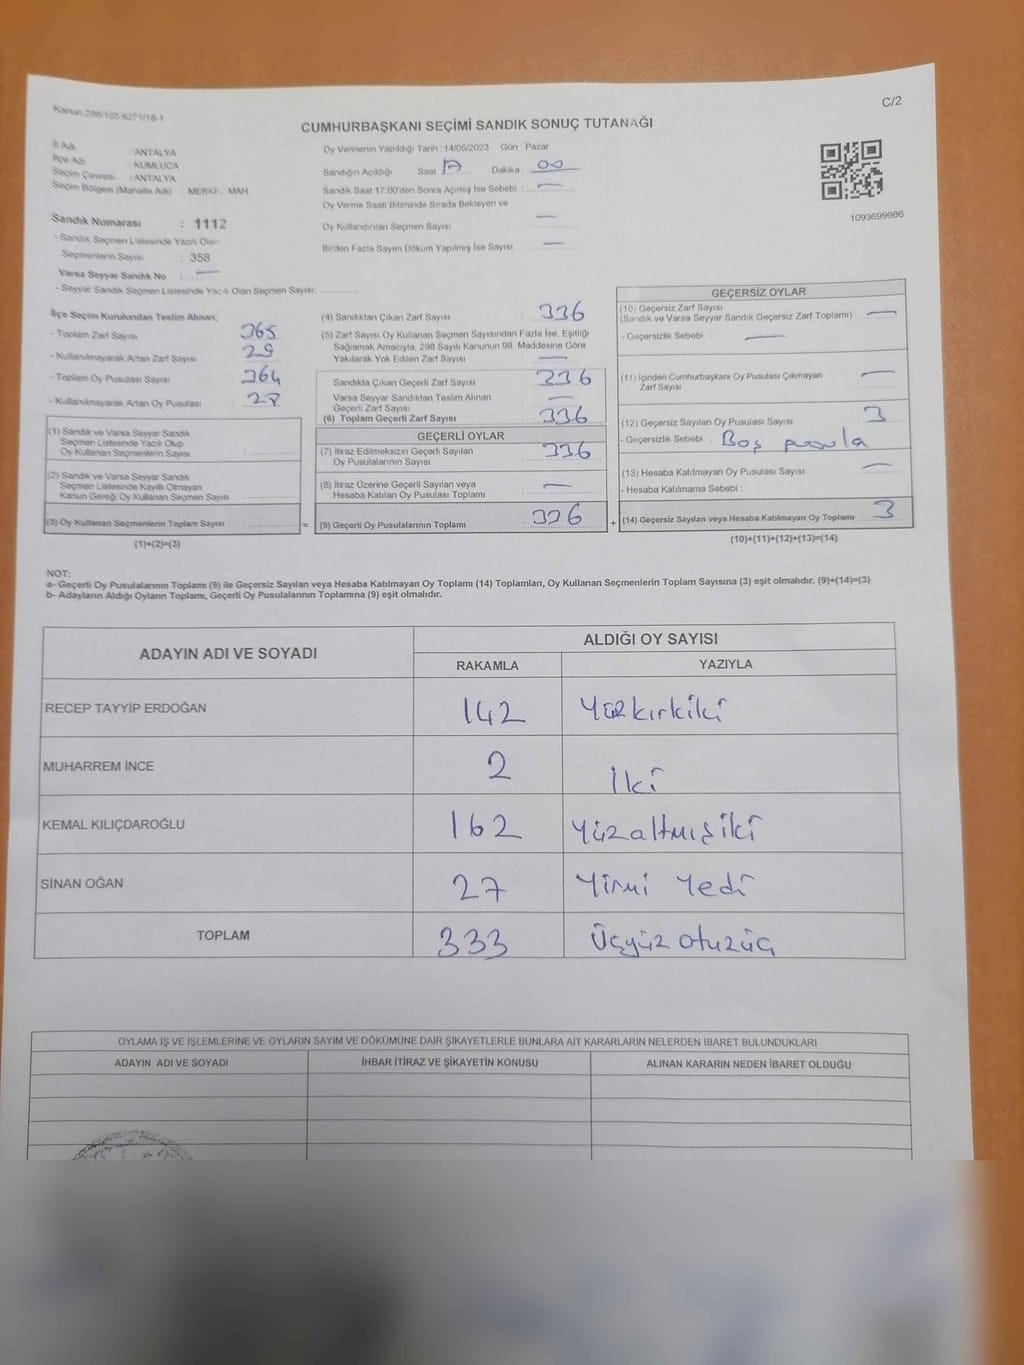 Kanun 298/105/6271/18-1
C/2
CUMHURBAŞKANI SEÇİMİ SANDIK SONUÇ TUTANAĞI
İl Adı : ANTALYA
İlçe Adı : KUMLUCA
Seçim Çevresi : ANTALYA
Seçim Bölgesi (Mahalle Adı) : MERKE. MAH.
Sandık Numarası : 1112
- Sandık Seçmen Listesinde Yazılı Olan
Seçmenlerin Sayısı : 358
Varsa Seyyar Sandık No : —
- Seyyar Sandık Seçmen Listesinde Yazılı Olan Seçmen Sayısı:
Oy Vermenin Yapıldığı Tarih : 14/05/2023 Gün : Pazar
Sandığın Açıldığı Saat 17 Dakika : 00
Sandık Saat 17:00'den Sonra Açımış İse Sebebi : —
Oy Verme Saati Bitiminde Sırada Bekleyen ve
Oy Kullandırılan Seçmen Sayısı : —
Birden Fazla Sayım Döküm Yapılmış İse Sayısı : —
1093699986
İlçe Seçim Kurulundan Teslim Alınan;
- Toplam Zarf Sayısı : 365
- Kullanılmayarak Artan Zarf Sayısı : 29
- Toplam Oy Pusulası Sayısı : 364
- Kullanılmayarak Artan Oy Pusulası : 28
(1) Sandık ve Varsa Seyyar Sandık
Seçmen Listesinde Yazılı Olup
Oy Kullanan Seçmenlerin Sayısı :
(2) Sandık ve Varsa Seyyar Sandık
Seçmen Listesinde Kayıtlı Olmayan
Kanun Gereği Oy Kullanan Seçmen Sayısı :
(3) Oy Kullanan Seçmenlerin Toplam Sayısı :
(1)+(2)=(3)
=
(4) Sandıktan Çıkan Zarf Sayısı : 336
(5) Zarf Sayısı Oy Kullanan Seçmen Sayısından Fazla İse, Eşitliği
Sağlamak Amacıyla, 298 Sayılı Kanunun 98. Maddesine Göre
Yakılarak Yok Edilen Zarf Sayısı : —
Sandıkta Çıkan Geçerli Zarf Sayısı : 336
Varsa Seyyar Sandıktan Teslim Alınan
Geçerli Zarf Sayısı : —
(6) Toplam Geçerli Zarf Sayısı : 336
GEÇERLİ OYLAR
(7) İtiraz Edilmeksizin Geçerli Sayılan
Oy Pusulalarının Sayısı : 336
(8) İtiraz Üzerine Geçerli Sayılan veya
Hesaba Katılan Oy Pusulası Toplamı : —
(9) Geçerli Oy Pusulalarının Toplamı : 336
+
GEÇERSİZ OYLAR
(10) Geçersiz Zarf Sayısı
(Sandık ve Varsa Seyyar Sandık Geçersiz Zarf Toplamı) : —
- Geçersizlik Sebebi : —
(11) İçinden Cumhurbaşkanı Oy Pusulası Çıkmayan
Zarf Sayısı : —
(12) Geçersiz Sayılan Oy Pusulası Sayısı : 3
- Geçersizlik Sebebi : Boş pusula
(13) Hesaba Katılmayan Oy Pusulası Sayısı : —
- Hesaba Katılmama Sebebi :
(14) Geçersiz Sayılan veya Hesaba Katılmayan Oy Toplamı : 3
(10)+(11)+(12)+(13)=(14)
NOT:
a- Geçerli Oy Pusulalarının Toplamı (9) ile Geçersiz Sayılan veya Hesaba Katılmayan Oy Toplamı (14) Toplamları, Oy Kullanan Seçmenlerin Toplam Sayısına (3) eşit olmalıdır. (9)+(14)=(3)
b- Adayların Aldığı Oyların Toplamı, Geçerli Oy Pusulalarının Toplamına (9) eşit olmalıdır.
ADAYIN ADI VE SOYADI
ALDIĞI OY SAYISI
RAKAMLA YAZIYLA
RECEP TAYYİP ERDOĞAN 142 Yüzkırkiki
MUHARREM İNCE 2 İki
KEMAL KILIÇDAROĞLU 162 Yüzaltmışiki
SİNAN OĞAN 27 Yirmi Yedi
TOPLAM 333 Üçyüz otuzüç
OYLAMA İŞ VE İŞLEMLERİNE VE OYLARIN SAYIM VE DÖKÜMÜNE DAİR ŞİKAYETLERLE BUNLARA AİT KARARLARIN NELERDEN İBARET BULUNDUKLARI
ADAYIN ADI VE SOYADI İHBAR İTİRAZ VE ŞİKAYETİN KONUSU ALINAN KARARIN NEDEN İBARET OLDUĞU